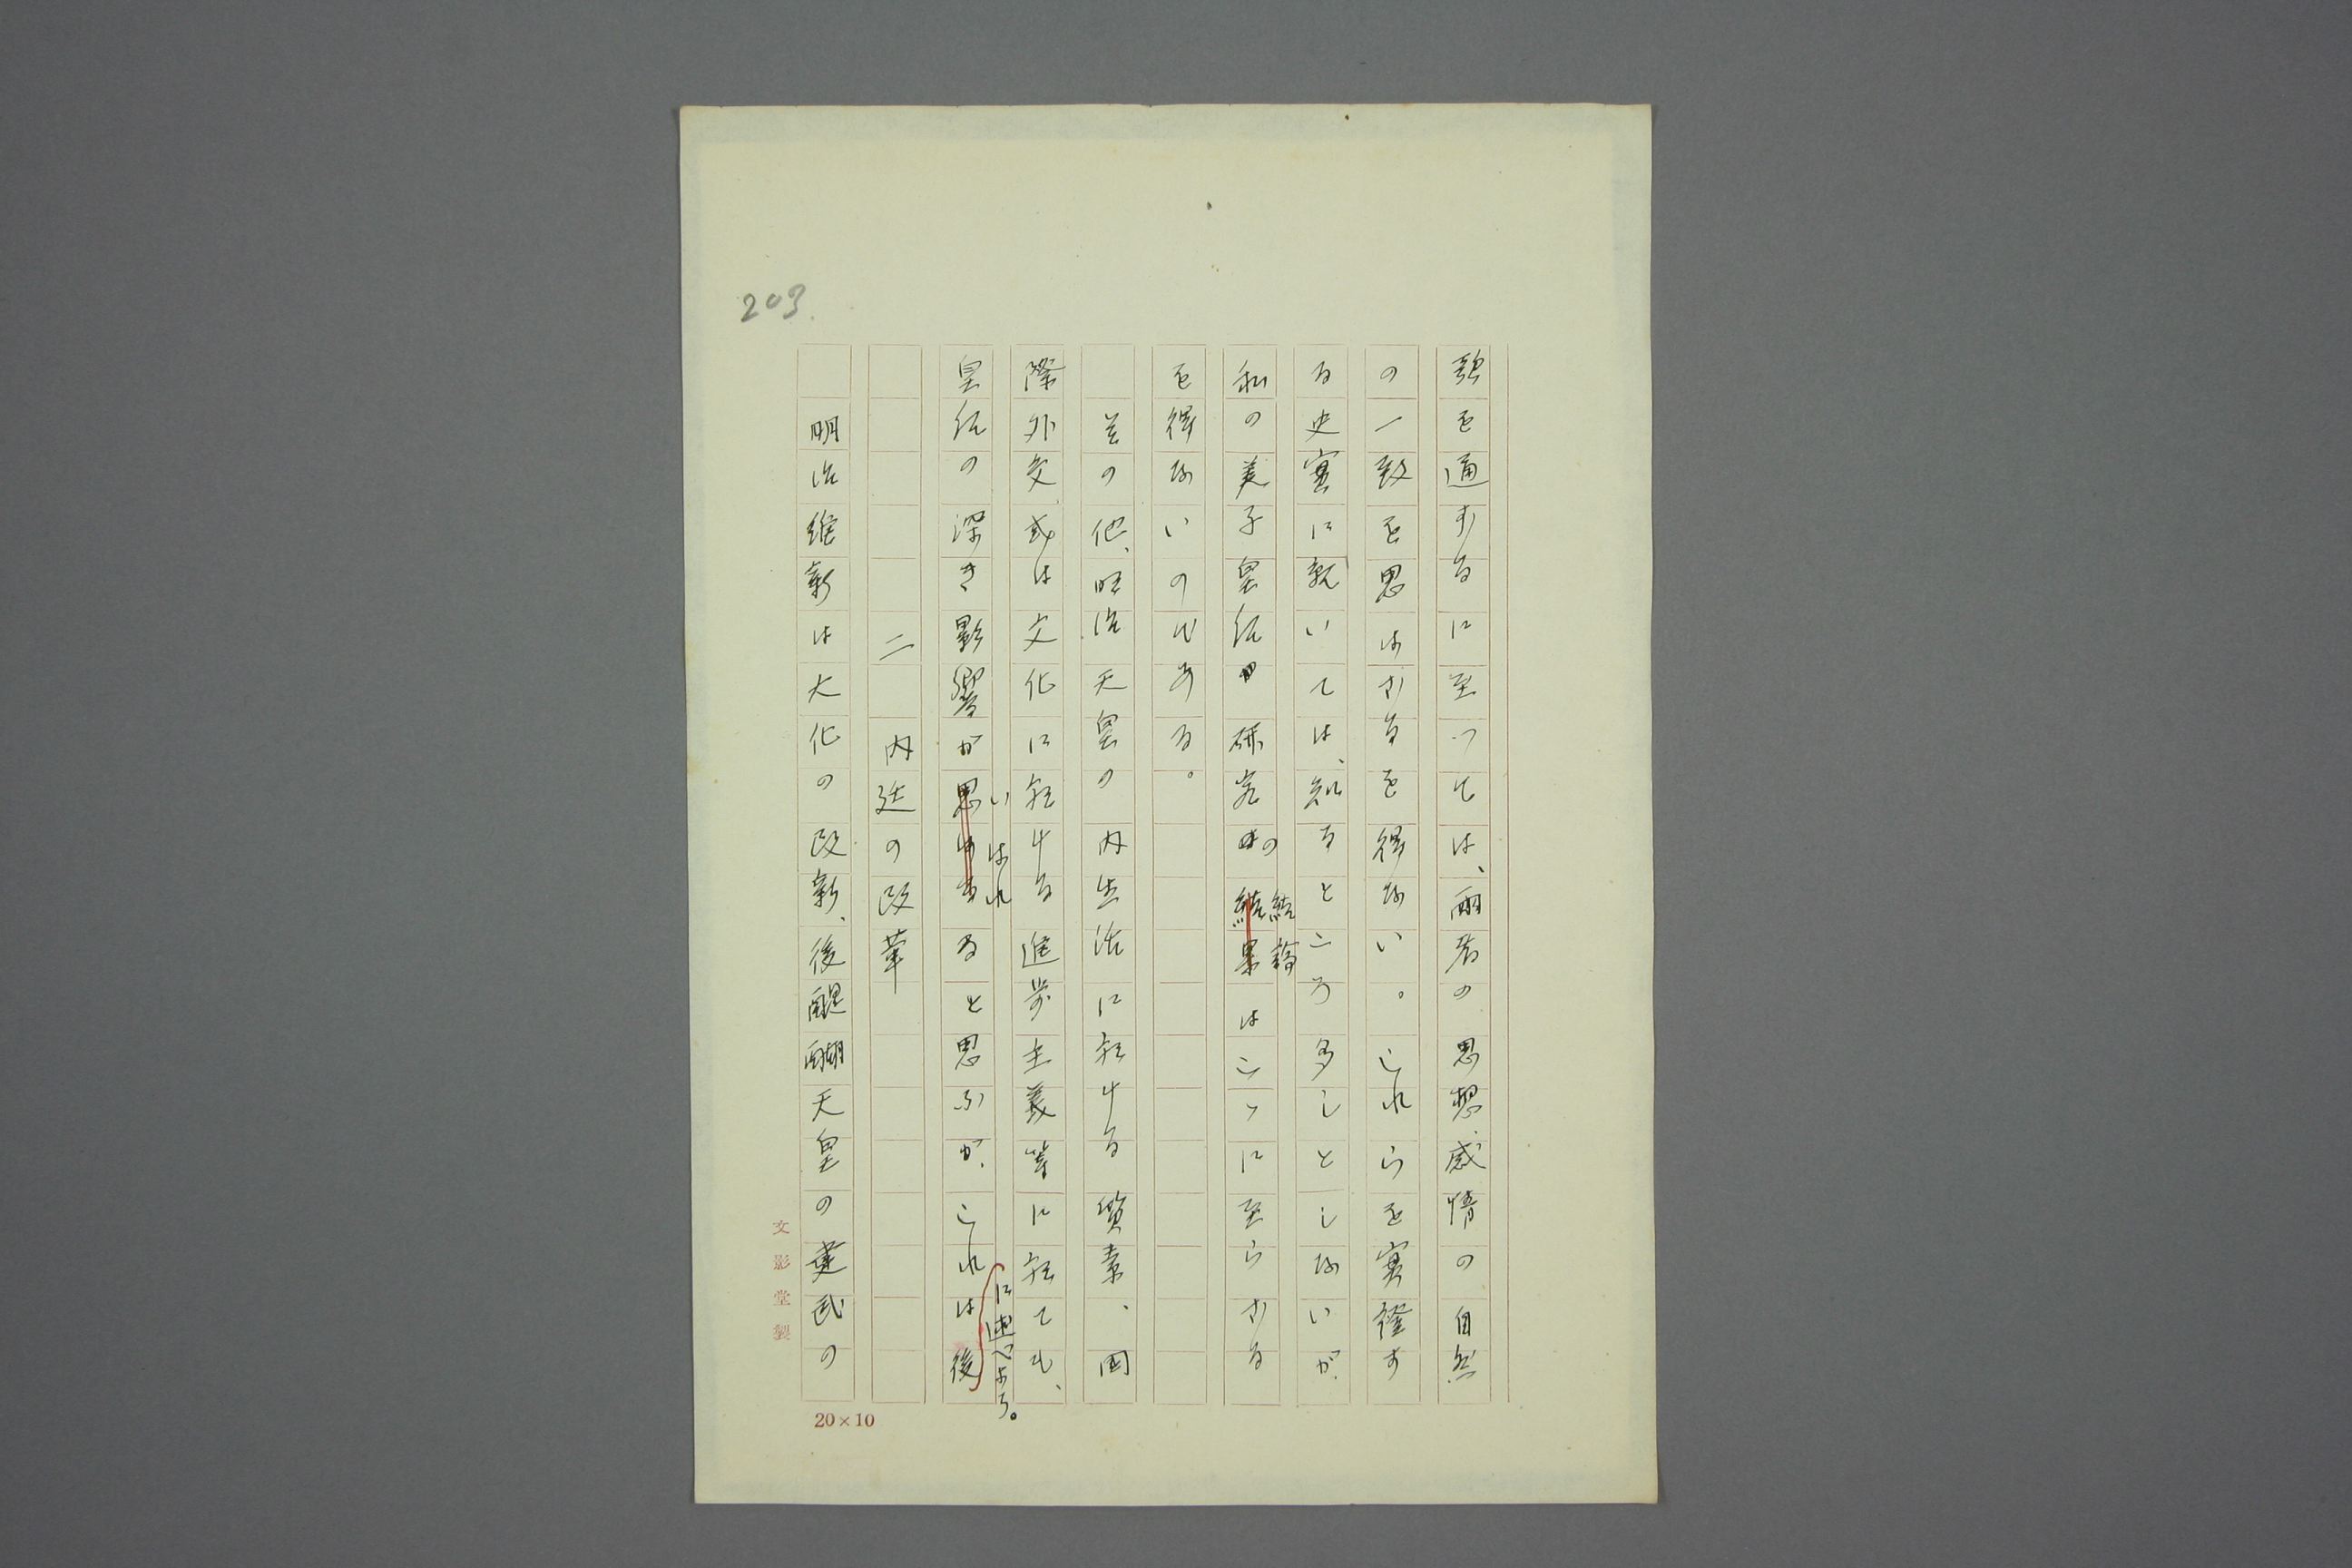 203.
歌を通ずるに至つては、兩者の思想、感情の自然
の一致を思はざるを得ない。これらを實證す
る史實に就いては、知るところ多しとしないが、
私の美子皇后研究の結論はこゝに至らざる
を得ないのである。
其の他、明治天皇の内生活に於ける質素、國
際外交、或は文化に於ける進歩主義等に於ても、
皇后の深き影響がいはれると思ふが、これは後に述べよう。
二 内廷の改革
明治維新は大化の改新、後醍醐天皇の建武の
文影堂製
20×10